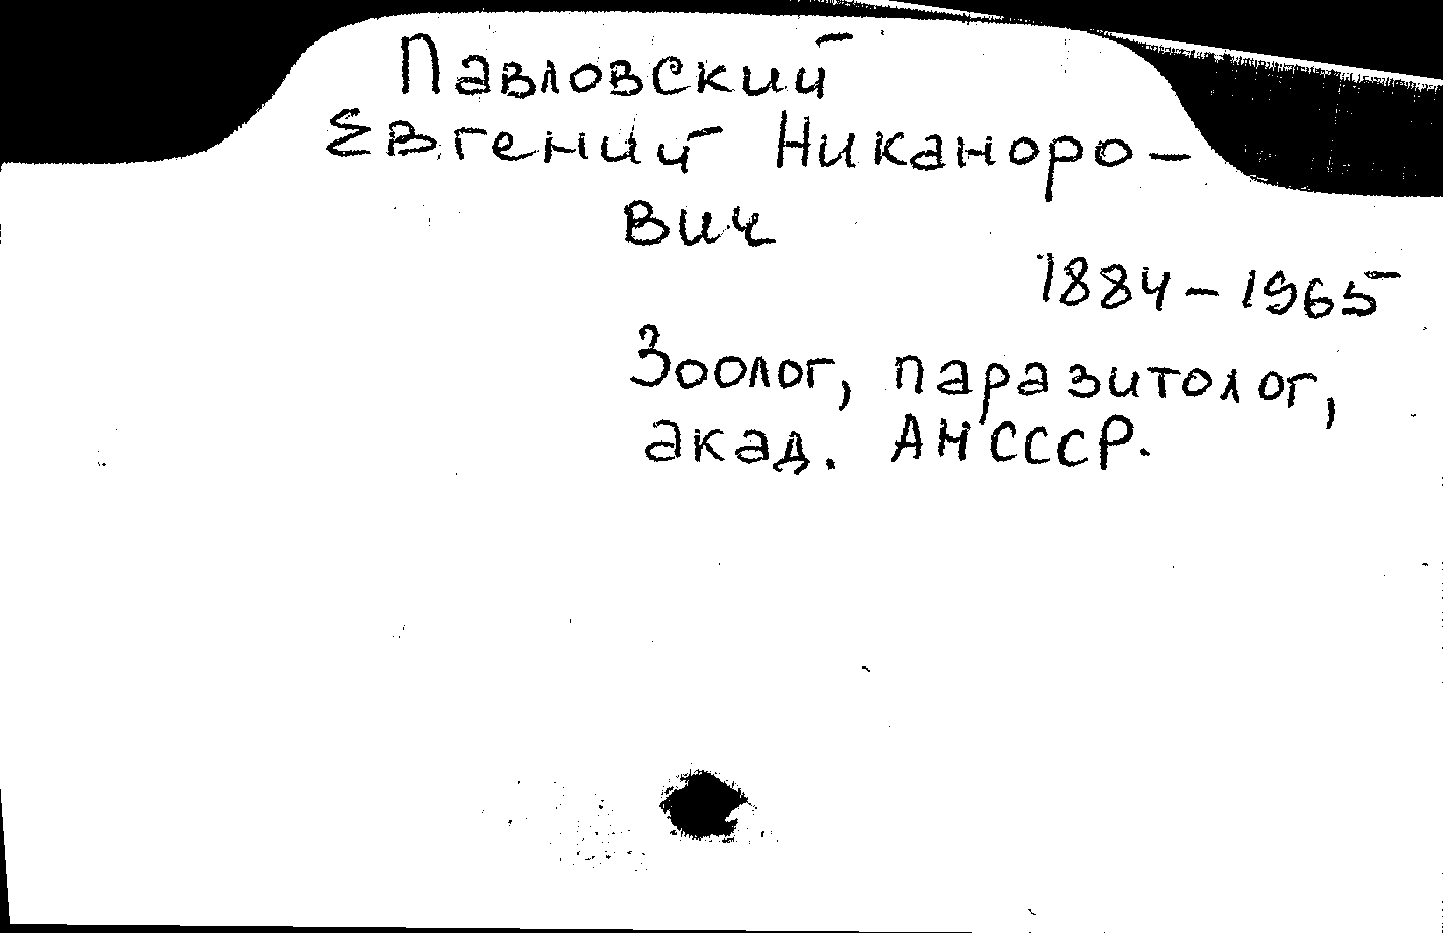 Павловский
Евгений Никаноро-
вич
1884-1965
Зоолог, паразитолог,
акад. АН СССР.